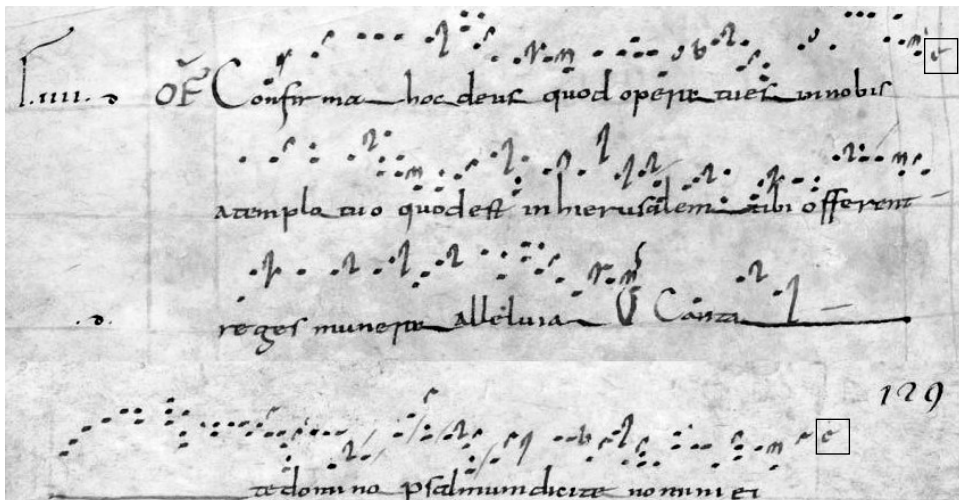 l.iiii. d OF Confirma hoc deus quod operatus es in nobis e
a templo tuo quod est in hierusalem tibi offerent
.d. reges munera alleluia V Canta
129
te domino psalmum dicite nomini ei e